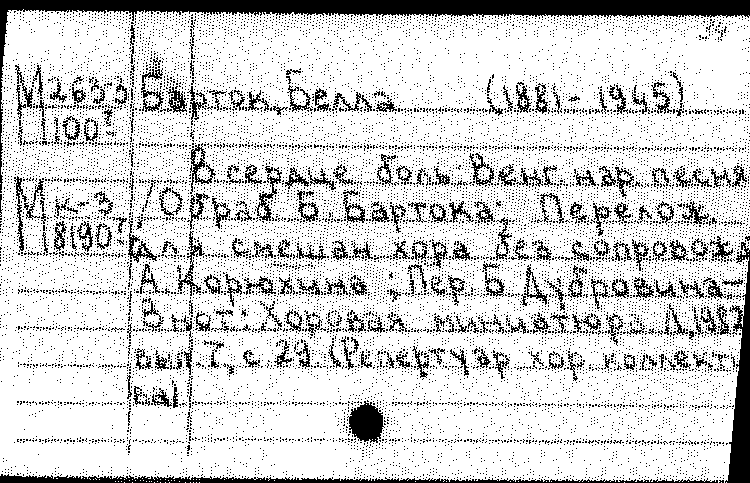 34
М2633 Барток, Белла (1881-1945)
П100г
В сердце боль: Венг. нар. песня
Мк-3 / Обраб. Б. Бартока; Перелож.
П8190г для смешан хора без сопровожд
А. Корюхина; Пер. Б Дубровина-
В нот: Хоровая миниатюра. Л, 1982
вып 7, с 29 (Репертуар хор коллекти
ва)